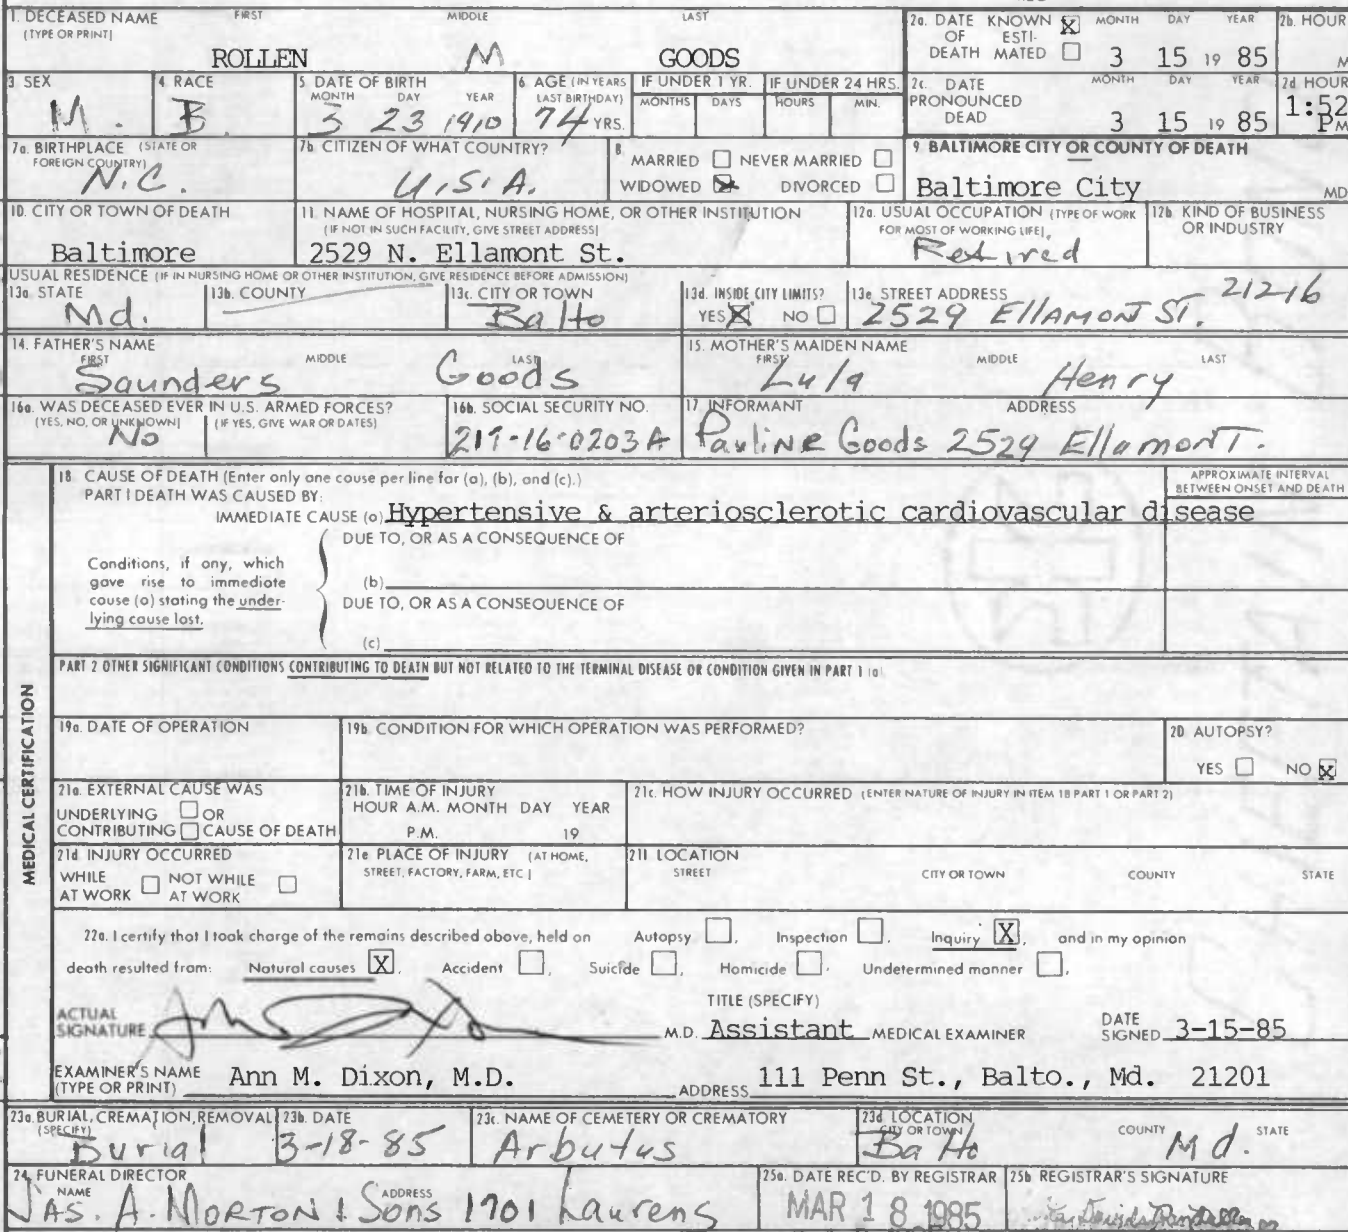 1. DECEASED NAME FIRST MIDDLE LAST
(TYPE OR PRINT)
ROLLEN M GOODS
2a. DATE KNOWN X MONTH DAY YEAR
OF ESTI-
DEATH MATED 3 15 19 85
2b. HOUR
M
3 SEX
M.
4 RACE
B.
5 DATE OF BIRTH
MONTH DAY YEAR
3 23 1910
6 AGE (IN YEARS
LAST BIRTHDAY)
74 YRS.
IF UNDER 1 YR.
MONTHS DAYS
IF UNDER 24 HRS.
HOURS MIN.
2c. DATE MONTH DAY YEAR
PRONOUNCED
DEAD 3 15 19 85
2d HOUR
1:52
PM
7a. BIRTHPLACE (STATE OR
FOREIGN COUNTRY)
N.C.
7b. CITIZEN OF WHAT COUNTRY?
U.S.A.
8
MARRIED NEVER MARRIED
WIDOWED X DIVORCED
9 BALTIMORE CITY OR COUNTY OF DEATH
Baltimore City MD
10. CITY OR TOWN OF DEATH
Baltimore
11. NAME OF HOSPITAL, NURSING HOME, OR OTHER INSTITUTION
(IF NOT IN SUCH FACILITY, GIVE STREET ADDRESS)
2529 N. Ellamont St.
12a. USUAL OCCUPATION (TYPE OF WORK
FOR MOST OF WORKING LIFE)
Retired
12b. KIND OF BUSINESS
OR INDUSTRY
USUAL RESIDENCE (IF IN NURSING HOME OR OTHER INSTITUTION, GIVE RESIDENCE BEFORE ADMISSION)
13a STATE
Md.
13b. COUNTY
13c. CITY OR TOWN
Balto
13d. INSIDE CITY LIMITS?
YES X NO
13e STREET ADDRESS 21216
2529 EllAMONT ST.
14. FATHER'S NAME
FIRST MIDDLE LAST
Saunders Goods
15. MOTHER'S MAIDEN NAME
FIRST MIDDLE LAST
Lula Henry
16a. WAS DECEASED EVER IN U.S. ARMED FORCES?
(YES, NO, OR UNKNOWN) (IF YES, GIVE WAR OR DATES)
No
16b. SOCIAL SECURITY NO.
217-16-0203A
17. INFORMANT ADDRESS
Pauline Goods 2529 EllamonT.
MEDICAL CERTIFICATION
18 CAUSE OF DEATH (Enter only one cause per line for (a), (b), and (c).)
PART I DEATH WAS CAUSED BY:
IMMEDIATE CAUSE (a) Hypertensive & arteriosclerotic cardiovascular disease
APPROXIMATE INTERVAL
BETWEEN ONSET AND DEATH
DUE TO, OR AS A CONSEQUENCE OF
Conditions, if any, which
gave rise to immediate
cause (a) stating the under-
lying cause last.
(b)
DUE TO, OR AS A CONSEQUENCE OF
(c)
PART 2 OTHER SIGNIFICANT CONDITIONS CONTRIBUTING TO DEATH BUT NOT RELATED TO THE TERMINAL DISEASE OR CONDITION GIVEN IN PART 1 (a)
19a. DATE OF OPERATION
19b CONDITION FOR WHICH OPERATION WAS PERFORMED?
20 AUTOPSY?
YES NO X
21a. EXTERNAL CAUSE WAS
UNDERLYING OR
CONTRIBUTING CAUSE OF DEATH
21b. TIME OF INJURY
HOUR A.M. MONTH DAY YEAR
P.M. 19
21c. HOW INJURY OCCURRED (ENTER NATURE OF INJURY IN ITEM 18 PART 1 OR PART 2)
21d INJURY OCCURRED
WHILE NOT WHILE
AT WORK AT WORK
21e PLACE OF INJURY (AT HOME,
STREET, FACTORY, FARM, ETC.)
21f LOCATION
STREET CITY OR TOWN COUNTY STATE
22a. I certify that I took charge of the remains described above, held on Autopsy , Inspection , Inquiry X , and in my opinion
death resulted from: Natural causes X , Accident , Suicide , Homicide , Undetermined manner ,
ACTUAL
SIGNATURE
TITLE (SPECIFY)
M.D. Assistant MEDICAL EXAMINER
DATE
SIGNED 3-15-85
EXAMINER'S NAME
(TYPE OR PRINT) Ann M. Dixon, M.D. ADDRESS 111 Penn St., Balto., Md. 21201
23a. BURIAL, CREMATION, REMOVAL
(SPECIFY)
Burial
23b. DATE
3-18-85
23c. NAME OF CEMETERY OR CREMATORY
Arbutus
23d LOCATION
CITY OR TOWN COUNTY STATE
Balto Md.
24. FUNERAL DIRECTOR
NAME ADDRESS
JAS. A. MORTON & Sons 1701 Laurens
25a. DATE REC'D. BY REGISTRAR
MAR 18 1985
25b REGISTRAR'S SIGNATURE